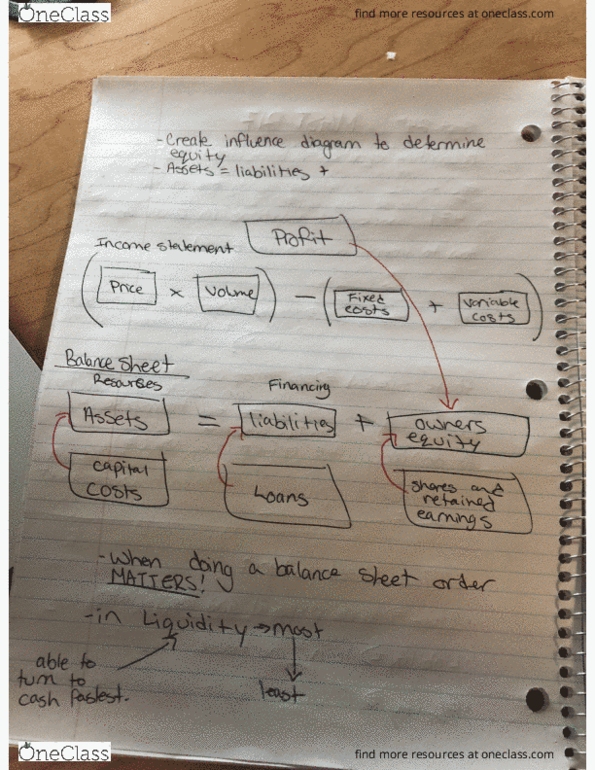 OneClass
find more resources at oneclass.com
-Create influence diagram to determine
equity
- Assets = liabilities +
Income statement
Profit
(Price × Volume) — (Fixed costs + Variable costs)
Balance sheet
Resources
Financing
Assets = liabilities + owners equity
capital costs
Loans
shares and retained earnings
-when doing a balance sheet order
MATTERS!
-in Liquidity → most
able to
turn to
cash fastest.
least
OneClass
find more resources at oneclass.com